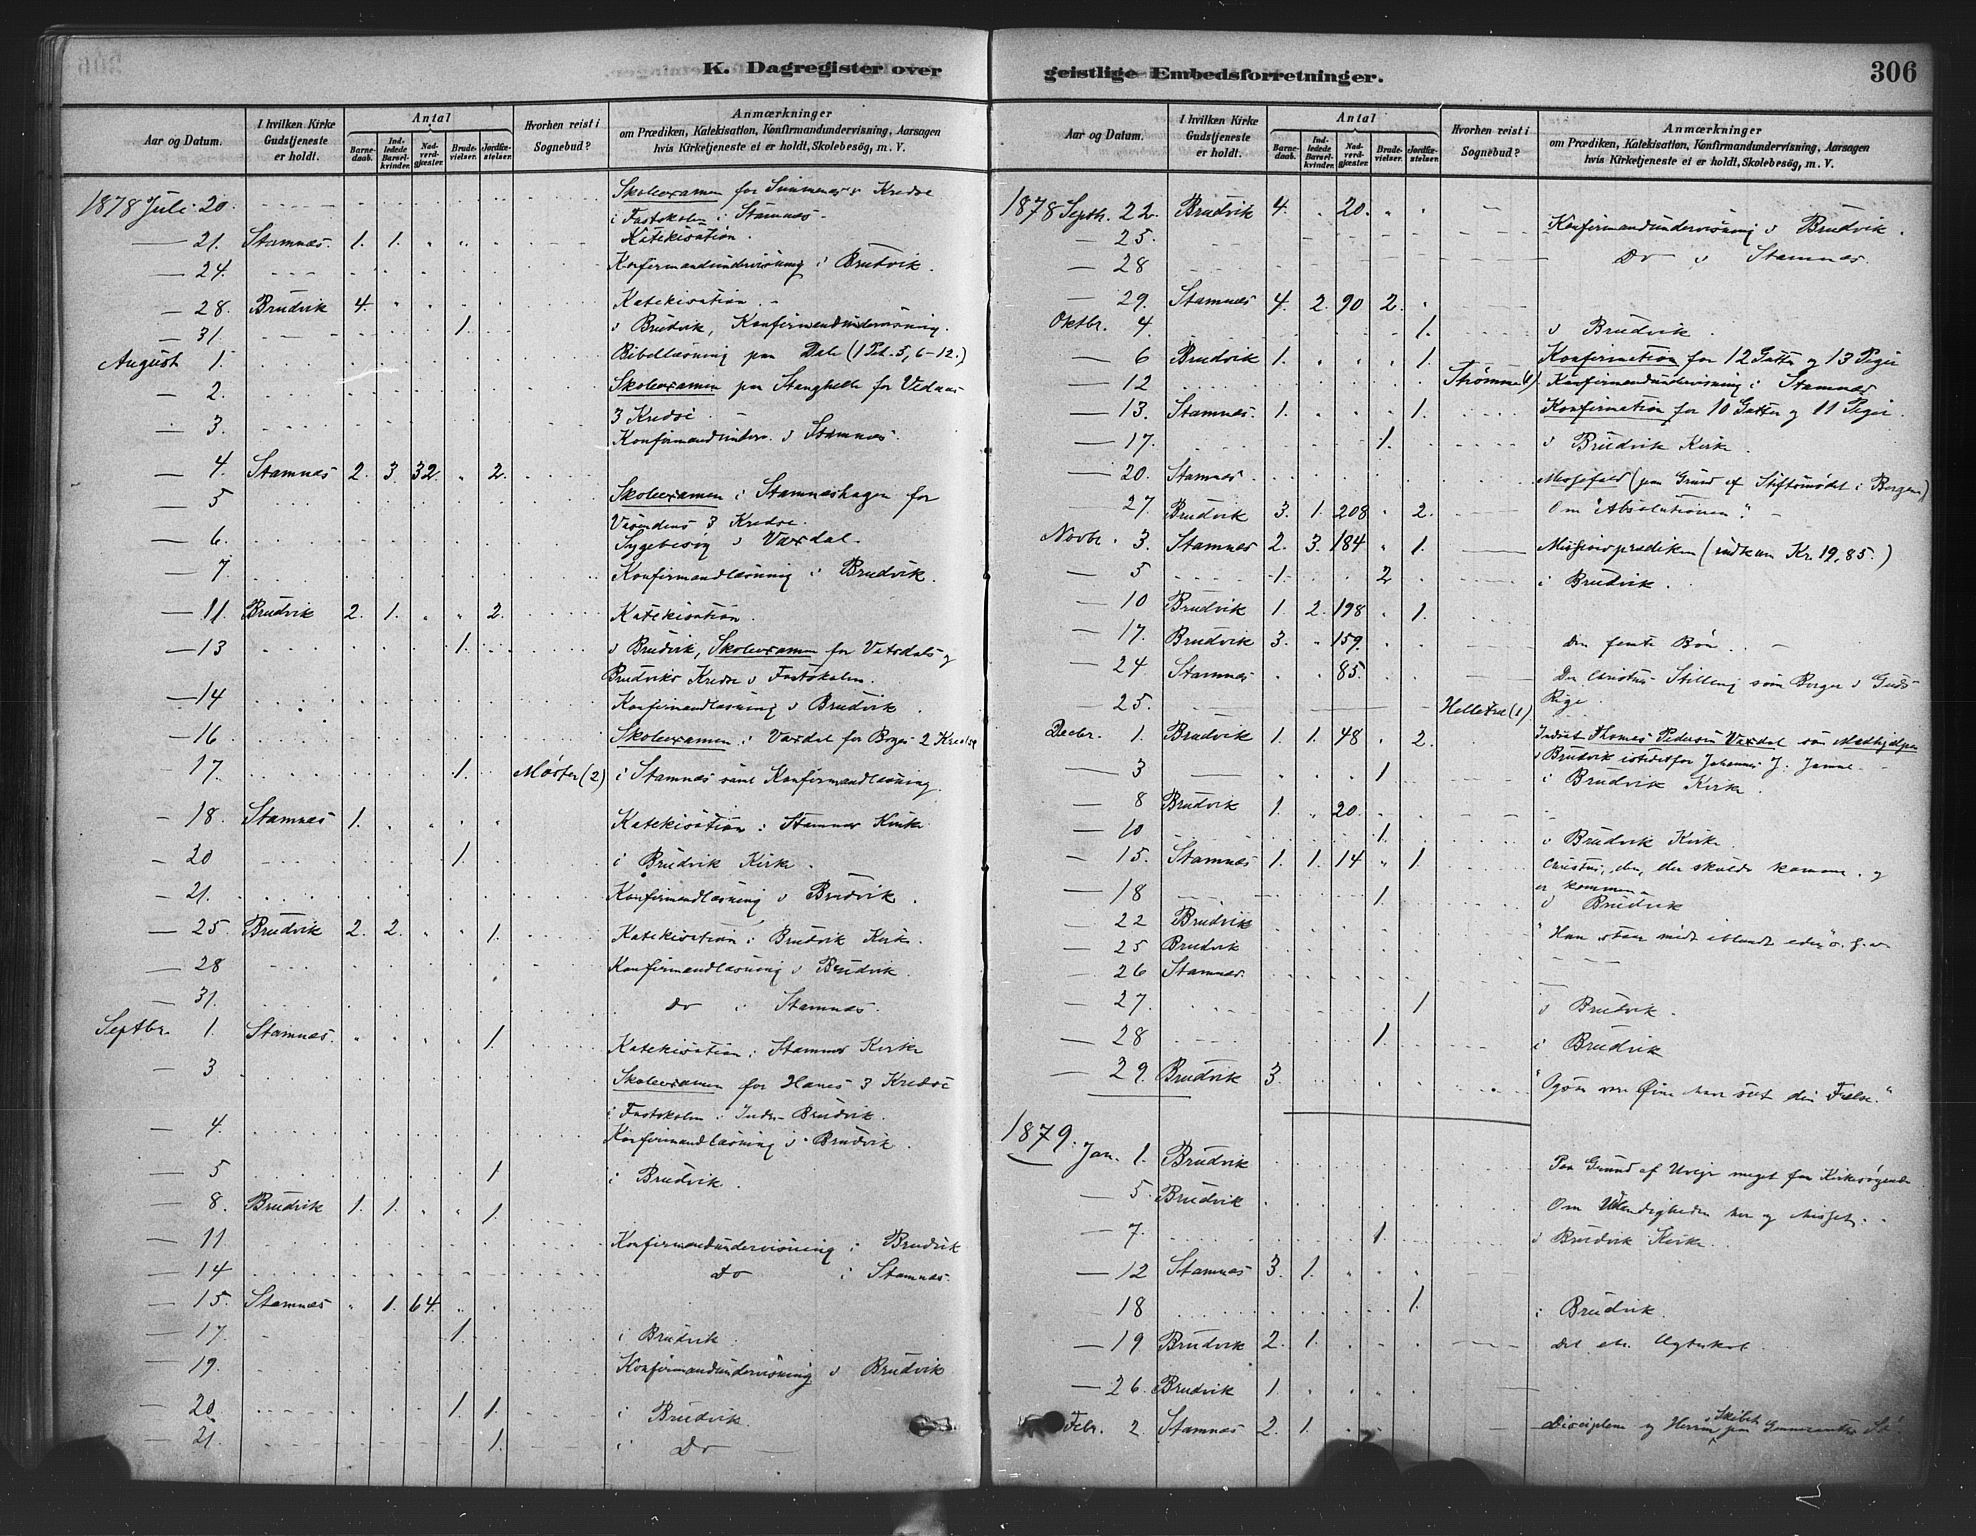 K. Dagregister over
Aar og Datum.
I hvilken Kirke Gudstjeneste er holdt.
Antal
Barnedaab.
Indledede Barselkvinder.
Nadverdgjester.
Brudevielser.
Jordfæstelser.
Hvorhen reist i Sognebud?
Anmærkninger
om Prædiken, Katekisation, Konfirmandundervisning, Aarsagen
hvis Kirketjeneste ei er holdt, Skolebesøg, m. V.
1878 Juli 20. Skoleexamen for Kreds
i Fastskolen i Stamnæs.
— 21. Stamnæs 1. 1. Katekisation.
— 24. Konfirmandundervisning i Brudvik.
— 28. Brudvik 4. Katekisation.
— 31. 1. i Brudvik, Konfirmandundervisning.
August 1. Bibellæsning paa Dale (1 Pet. 5, 6-12.)
— 2. Skoleexamen paa Stanghelle for
3 Kredse.
— 3. Konfirmandunderv. i Stamnæs.
— 4. Stamnæs 2. 3. 32. 2.
— 5 Skoleexamen i Stamneshagen for
3 Kredse.
— 6. Sygebesøg i Vaxdal.
— 7 Konfirmandlæsning i Brudvik.
— 11. Brudvik 2. 1. 2. Katekisation.
— 13 1. i Brudvik, Skoleexamen for og
Brudviks Kredse i Fastskolen.
— 14 Konfirmandlæsning i Brudvik.
— 16. Skoleexamen i Vaxdal for 2 Kredse
— 17. 1. Møster (2) i Stamnæs samt Konfirmandlæsning.
— 18. Stamnæs 1. Katekisation i Stamnæs Kirke
— 20 1. i Brudvik Kirke.
— 21. Konfirmandlæsning i Brudvik.
— 25. Brudvik 2. 2. 1. Katekisation i Brudvik Kirke.
— 28 Konfirmandlæsning i Brudvik.
— 31. Do i Stamnæs.
Septbr. 1. Stamnæs. 1. Katekisation i Stamnæs Kirke
— 3 Skoleexamen for Hanes 3 Kredse
i Fastskolen i Indre Brudvik.
— 4. Konfirmandlæsning i Brudvik.
— 5 1 i Brudvik.
— 8. Brudvik 1. 1. 1.
— 11 Konfirmandundervisning i Brudvik
— 14 Do i Stamnæs.
— 15. Stamnæs 1. 64.
— 17. 1. i Brudvik.
— 19. Konfirmandundervisning i Brudvik
— 20. 1. 1. i Brudvik.
— 21. 1. i Do —
geistlige Embedsforretninger.
306
Aar og Datum.
I hvilken Kirke Gudstjeneste er holdt.
Antal
Barnedaab.
Indledede Barselkvinder.
Nadverdgjester.
Brudevielser.
Jordfæstelser.
Hvorhen reist i Sognebud?
Anmærkninger
om Prædiken, Katekisation, Konfirmandundervisning, Aarsagen
hvis Kirketjeneste ei er holdt, Skolebesøg, m. V.
1878 Septbr. 22. Brudvik 4. 20.
— 25. Konfirmandundervisning i Brudvik.
— 28 Do i Stamnæs.
— 29. Stamnæs 4. 2. 90 2.
Oktbr. 4 1. i Brudvik.
— 6 Brudvik 1. 1. Konfirmation for 12 Gutter og 13 Piger
— 12 Strømme (1). Konfirmandundervisning i Stamnæs
— 13. Stamnæs. 1. 1. Konfirmation for 10 Gutter og 11 Piger.
— 17. 1. i Brudvik Kirke.
— 20. Stamnæs. Messefald (paa Grund af Stiftsmødet i Bergen)
— 27. Brudvik 3. 1. 208 2. Om "Absolutionen".
Novbr. 3. Stamnæs 2. 3. 184 1. Missionsprædiken (indkom Kr. 12,85.)
— 5 1. 2 i Brudvik.
— 10 Brudvik 1. 2. 198 1.
— 17. Brudvik 3. 159. Den femte Bøn.
— 24 Stamnæs 85. Den Christnes Stilling som Borger i Guds
Rige.
— 25. (1)
Decbr. 1. Brudvik 1. 1. 48 2. Indsat Thomas Pedersen Vaxdal som Medhjelper
i Brudvik istedetfor Johannes J.
— 3 1 i Brudvik Kirke.
— 8 Brudvik 1. 20.
— 10 1. i Brudvik Kirke.
— 15. Stamnæs 1. 1. 14 1. Christus, den, der skulde komme og
er kommen.
— 18 1. i Brudvik
— 22 Brudvik
— 25 Brudvik "Han staar midt iblandt eder" o.s.v.
— 26 Stamnæs.
— 27. 1 i Brudvik.
— 28 1. i Brudvik
— 29. Brudvik 3. "Og mine Øine have seet din Frelse."
1879. Jan. 1. Brudvik Paa Grund af Uveir meget faa Kirkesøgende
— 5. Brudvik Om her og hisset.
— 7. 1. i Brudvik Kirke.
— 12 Stamnæs 3. 1.
— 18 1. i Brudvik.
— 19 Brudvik 2. 1. Det
— 26. Brudvik 1.
Febr. 2. Stamnæs 2. 1. Disciplene og Herren i Skibet paa Genesareths Sø.